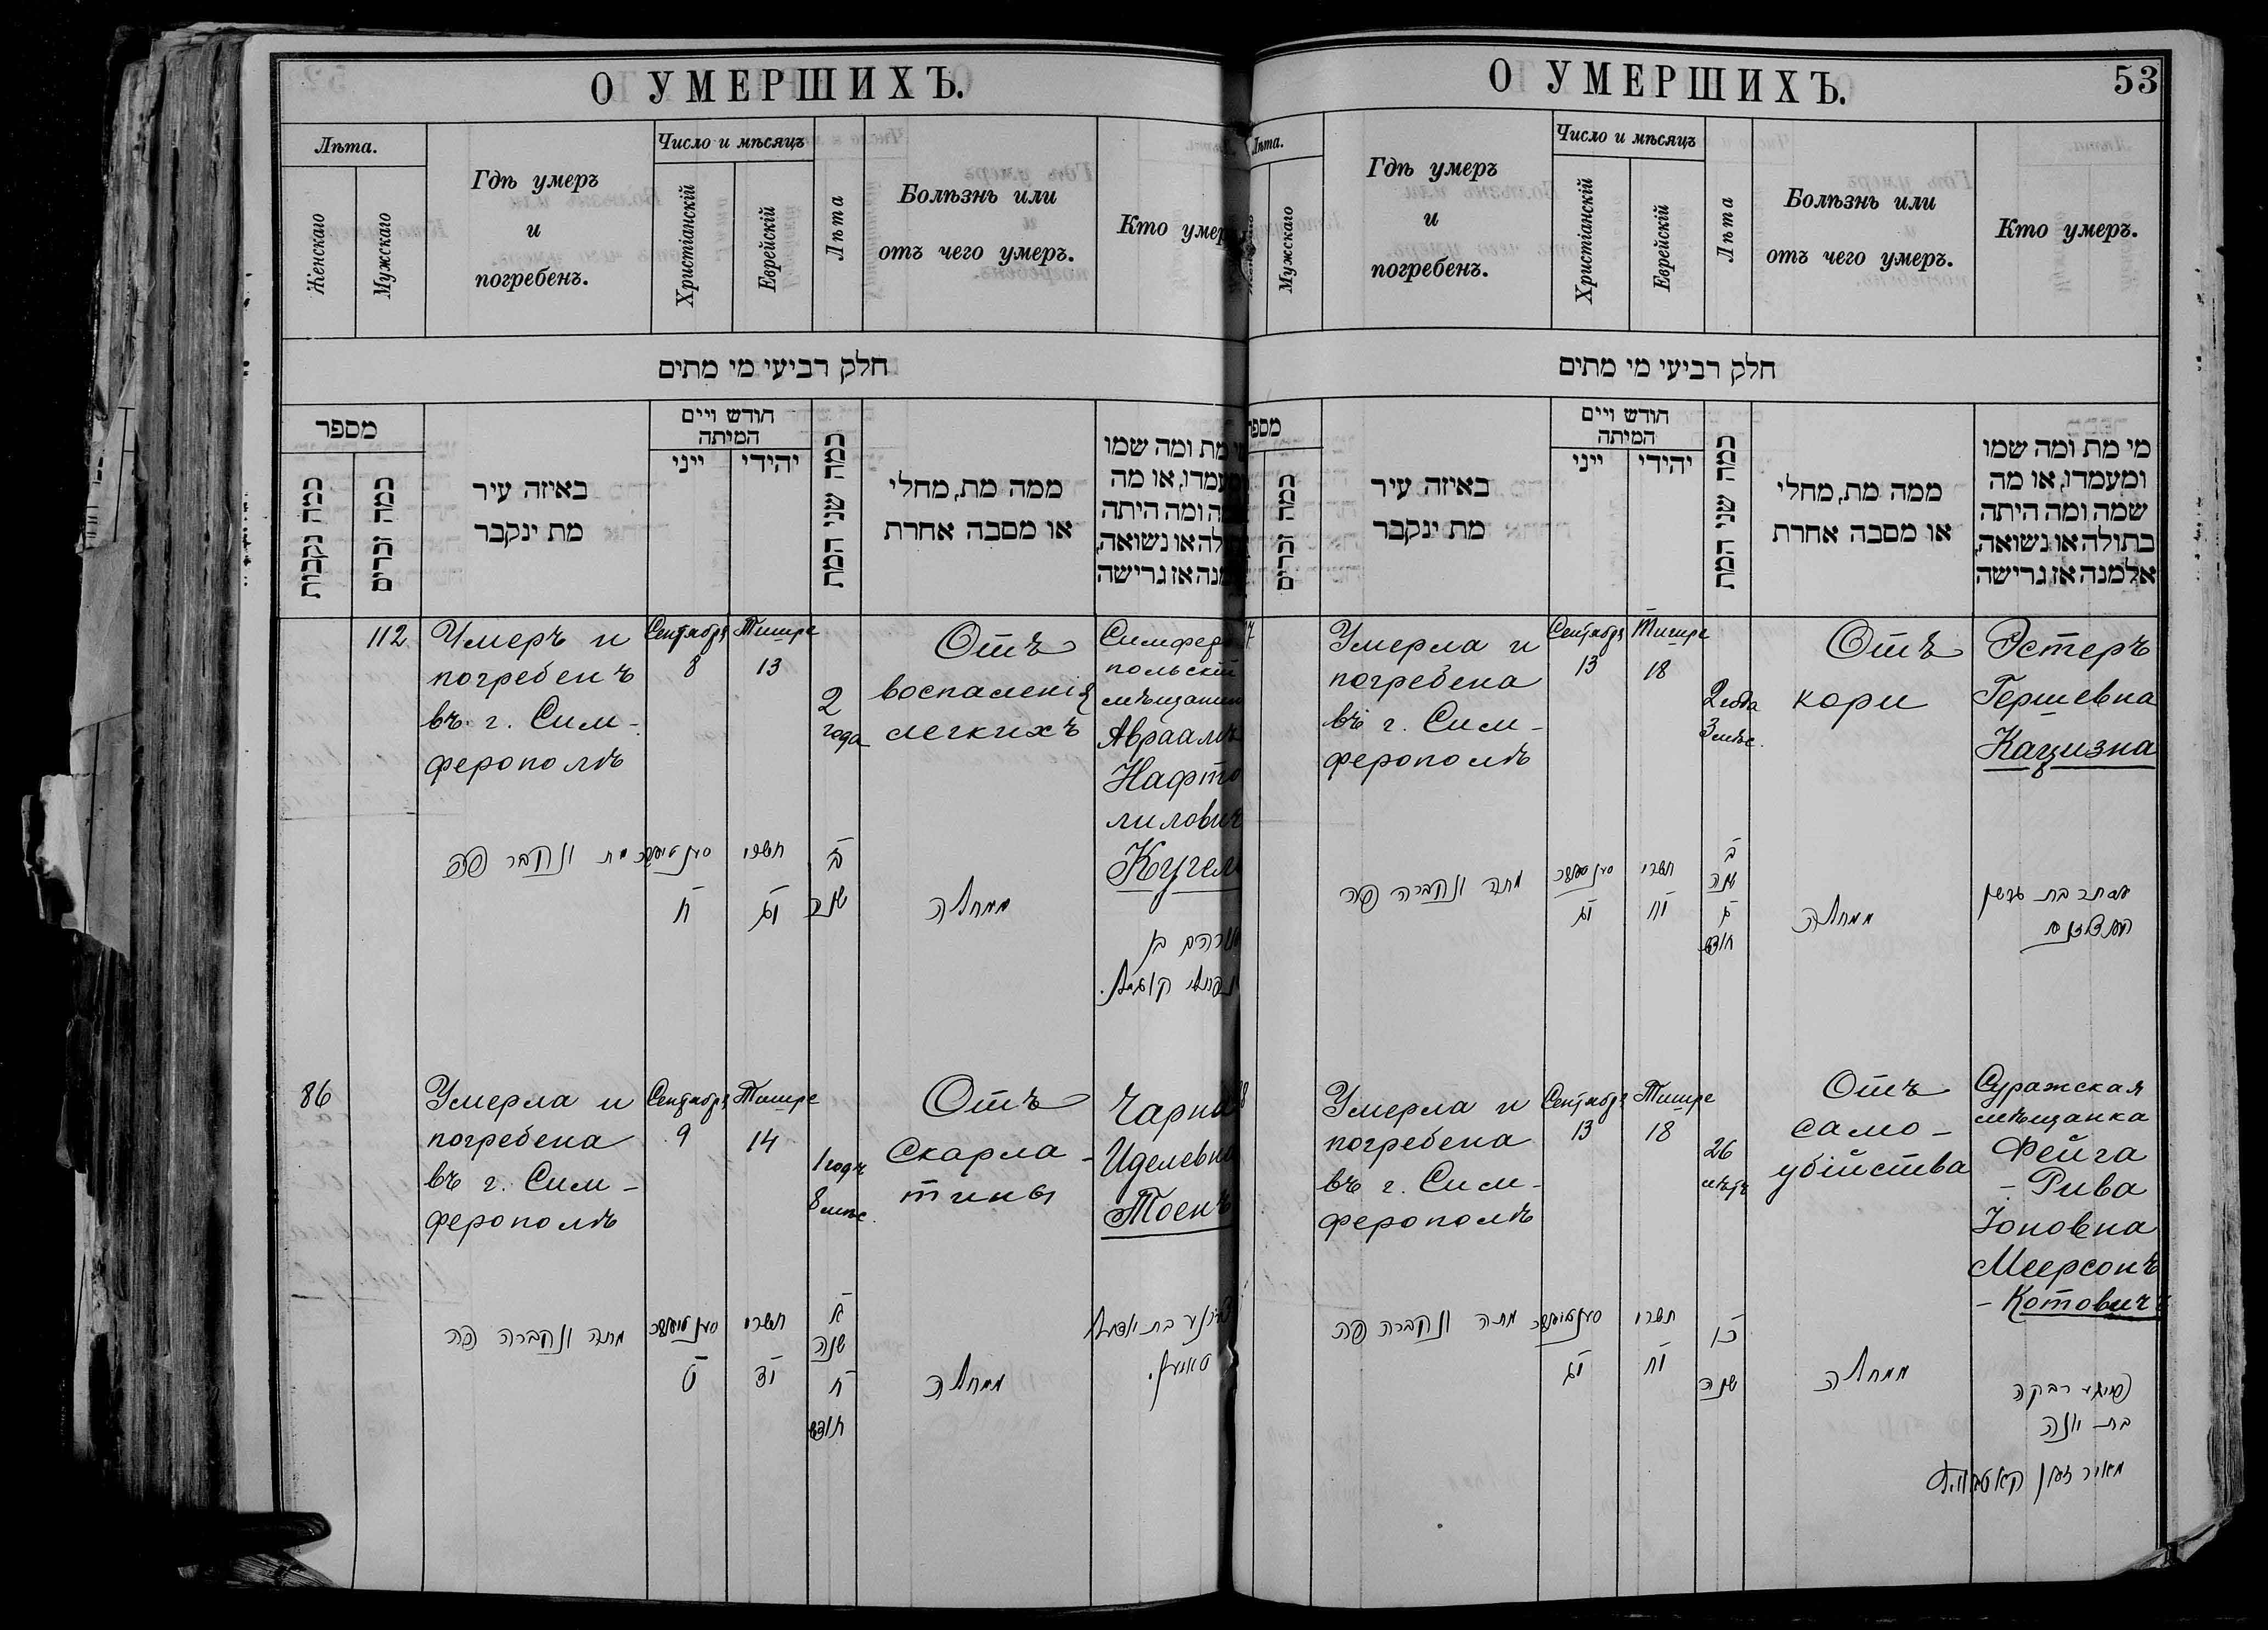 О УМЕРШИХЪ.
Лѣта.
Женскаго
Мужскаго
Гдѣ умеръ
и
погребенъ.
Число и мѣсяцъ
Христіанскій
Еврейскій
Лѣта
Болѣзнь или
отъ чего умеръ.
Кто умер
חלק רביעי מי מתים
מספר
כמה נקבות
כמה זכרים
באיזה עיר
מת ינקבר
חודש ויים
המיתה
ייני
יהודי
כמה שני המת
ממה מת, מחלי
או מסבה אחרת
מת ומה שמו
ומעמדו, או מה
ומה היתה
או נשואה,
אז גרישה
112
Умеръ и
погребенъ
въ г. Сим-
ферополѣ
Сентября
8
Тишре
13
2
года
Отъ
воспаленія
легкихъ
Симферо
польскій
мѣщанин
Авраамъ
Нафто
лилович
Кугел
מת ונקבר פה
סענטיאבר
ח
תשרי
יג
ב
שנה
ממחלה
אברהם בן
נפתלי קוגעל.
86
Умерла и
погребена
въ г. Сим-
ферополѣ
Сентября
9
Тишре
14
1 годъ
8 мѣс.
Отъ
Скарла-
тины
Чарна
Иделевна
Тоенъ
מתה ונקברה פה
סענטיאבר
ט
תשרי
יד
א
שנה
ח
חודש
ממחלה
בת
О УМЕРШИХЪ.
53
Лѣта.
Мужскаго
Гдѣ умеръ
и
погребенъ.
Число и мѣсяцъ
Христіанскій
Еврейскій
Лѣта
Болѣзнь или
отъ чего умеръ.
Кто умеръ.
חלק רביעי מי מתים
מספר
כמה זכרים
באיזה עיר
מת ינקבר
חודש ויים
המיתה
ייני
יהודי
כמה שני המת
ממה מת, מחלי
או מסבה אחרת
מי מת ומה שמו
ומעמדו, או מה
שמה ומה היתה
בתולה או נשואה,
אלמנה אז גרישה
7
Умерла и
погребена
въ г. Сим-
ферополѣ
Сентября
13
Тишре
18
2 года
3 мѣс.
Отъ
кори
Эстеръ
Гершевна
Кацизна
מתה ונקברה פה
סענטיאבר
יג
תשרי
יח
ב
שנה
ג
חודש
ממחלה
אסתר בת גרשון
8
Умерла и
погребена
въ г. Сим-
ферополѣ
Сентября
13
Тишре
18
26
лѣтъ
Отъ
само-
убійства
Суражская
мѣщанка
Фейга
- Рива
Іоновна
Меерсонъ
- Котовичъ
מתה ונקברה פה
סענטיאבר
יג
תשרי
יח
כו
שנה
ממחלה
פייגע רבקה
בת יונה
מאירזאן קאטאוויץ